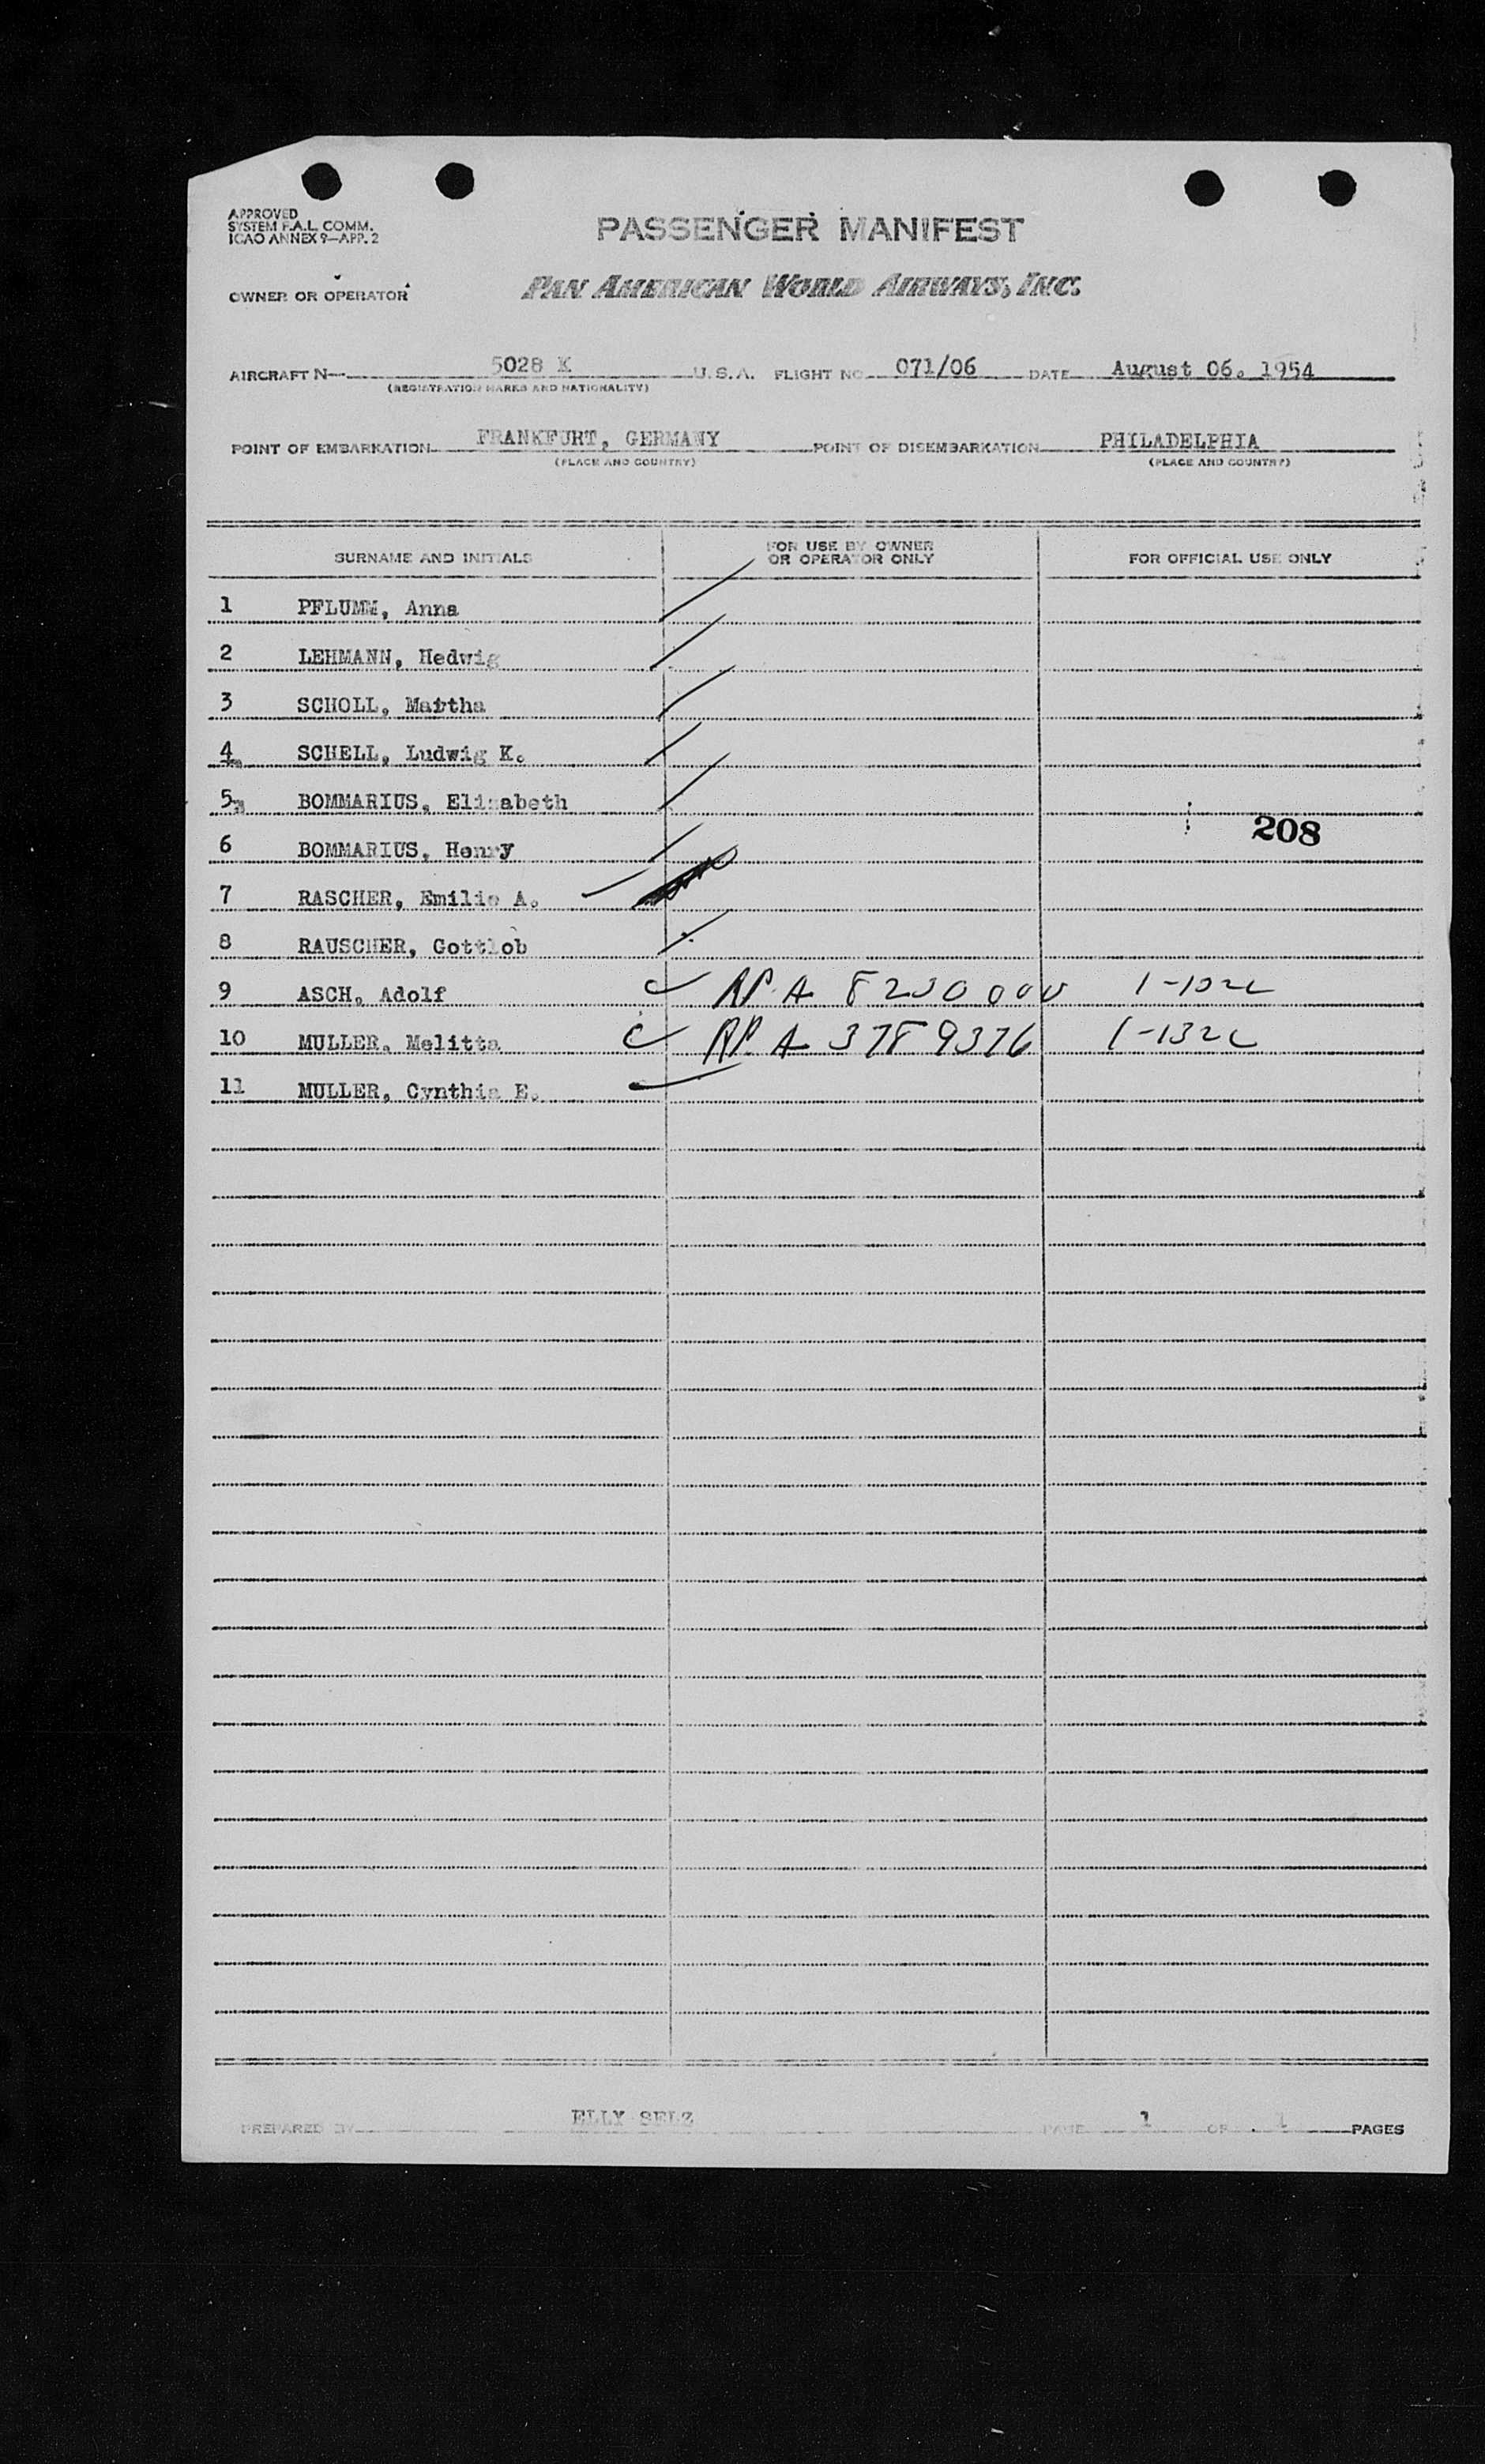 APPROVED
SYSTEM F.A.L. COMM.
ICAO ANNEX 9—APP. 2
PASSENGER MANIFEST
OWNER OR OPERATOR
PAN AMERICAN WORLD AIRWAYS, INC.
AIRCRAFT N— 5028 K U.S.A. FLIGHT NO. 071/06 DATE August 06. 1954
(REGISTRATION MARKS AND NATIONALITY)
POINT OF EMBARKATION FRANKFURT, GERMANY POINT OF DISEMBARKATION PHILADELPHIA
(PLACE AND COUNTRY) (PLACE AND COUNTRY)
SURNAME AND INITIALS FOR USE BY OWNER OR OPERATOR ONLY FOR OFFICIAL USE ONLY
1 PFLUMM, Anna
2 LEHMANN, Hedwig
3 SCHOLL, Martha
4 SCHELL, Ludwig K.
5 BOMMARIUS, Elizabeth
208
6 BOMMARIUS, Henry
7 RASCHER, Emilie A.
8 RAUSCHER, Gottlob
9 ASCH, Adolf A 8200000
10 MULLER, Melitta A 3789376 1-132c
11 MULLER, Cynthia E.
PREPARED BY ELLY SELZ PAGE 1 OF 1 PAGES